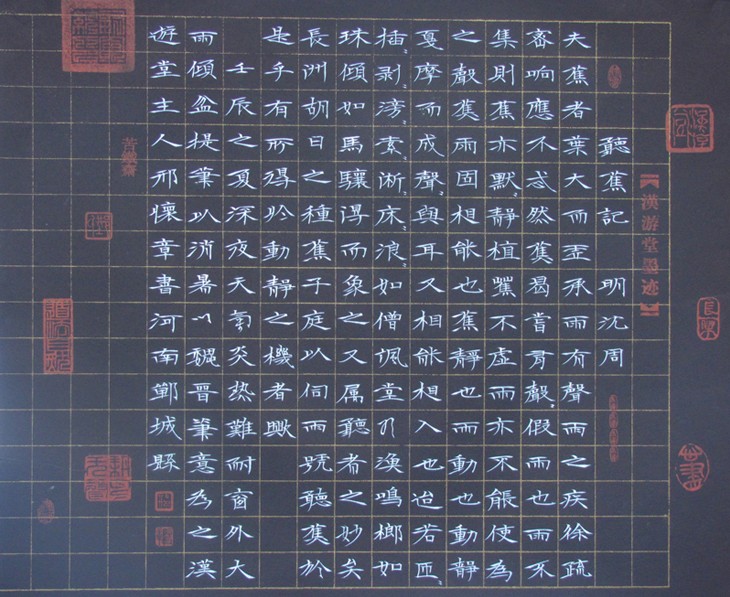 【漢游堂墨迹】
聽蕉記 明沈周
夫蕉者葉大而虛承雨有聲雨之疾徐疏
密响應不忒然蕉曷嘗有聲〻假雨也雨不
集則蕉亦默〻靜植蕉不虛雨亦不能使為
之聲蕉雨固相能也蕉靜也而動也動靜
戛摩而成聲與耳又相能相入也迨若匝〻
插〻剝〻滂〻索〻淅〻床〻浪〻如僧諷堂乃漁鳴榔如
珠傾如馬驤得而象之又属聽者之妙矣
長洲胡日之種蕉子庭以伺雨號聽蕉於
是乎有所得於動靜之機者歟
壬辰之夏深夜天氣炎热難耐窗外大
雨傾盆提筆以消暑以魏晉筆意為之漢
遊堂主人邢懷章書河南郾城縣